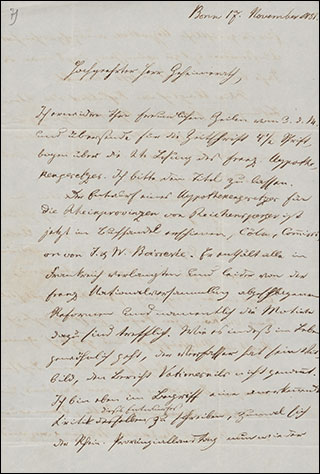 Bonn 17. November 1851.
Hochgeehrter Herr Geheimrath,
Ich erwidere Ihre freundlichen Zeilen vom 3. d. M.
und übersende für die Zeitschrift 4½
bogen über die 2te Lesung des franz. Hypothe-
kengesetzes. Ich bitte den Titel zu lassen.
Der Entwurf eines Hypothekengesetzes für
die Rheinprovinzen von Reichensperger ist
jetzt im Buchhandel erschienen, Cöln, Commis-
on von F. & W. Es enthält alle in
Frankreich verlangten und leider von der
franz. Nationalversammlung abgeschlagenen
Reformen und namentlich die Motive
dazu sind trefflich. Wie es indeß im Leben
gewöhnlich geht, der Verfasser hat sein
bild, den Bericht nicht genannt.
Ich bin eben im Begriff eine
Kritik dieses Entwurfes zu schreiben, zumal sich
der Rhein. Provinziallandtag nun wieder